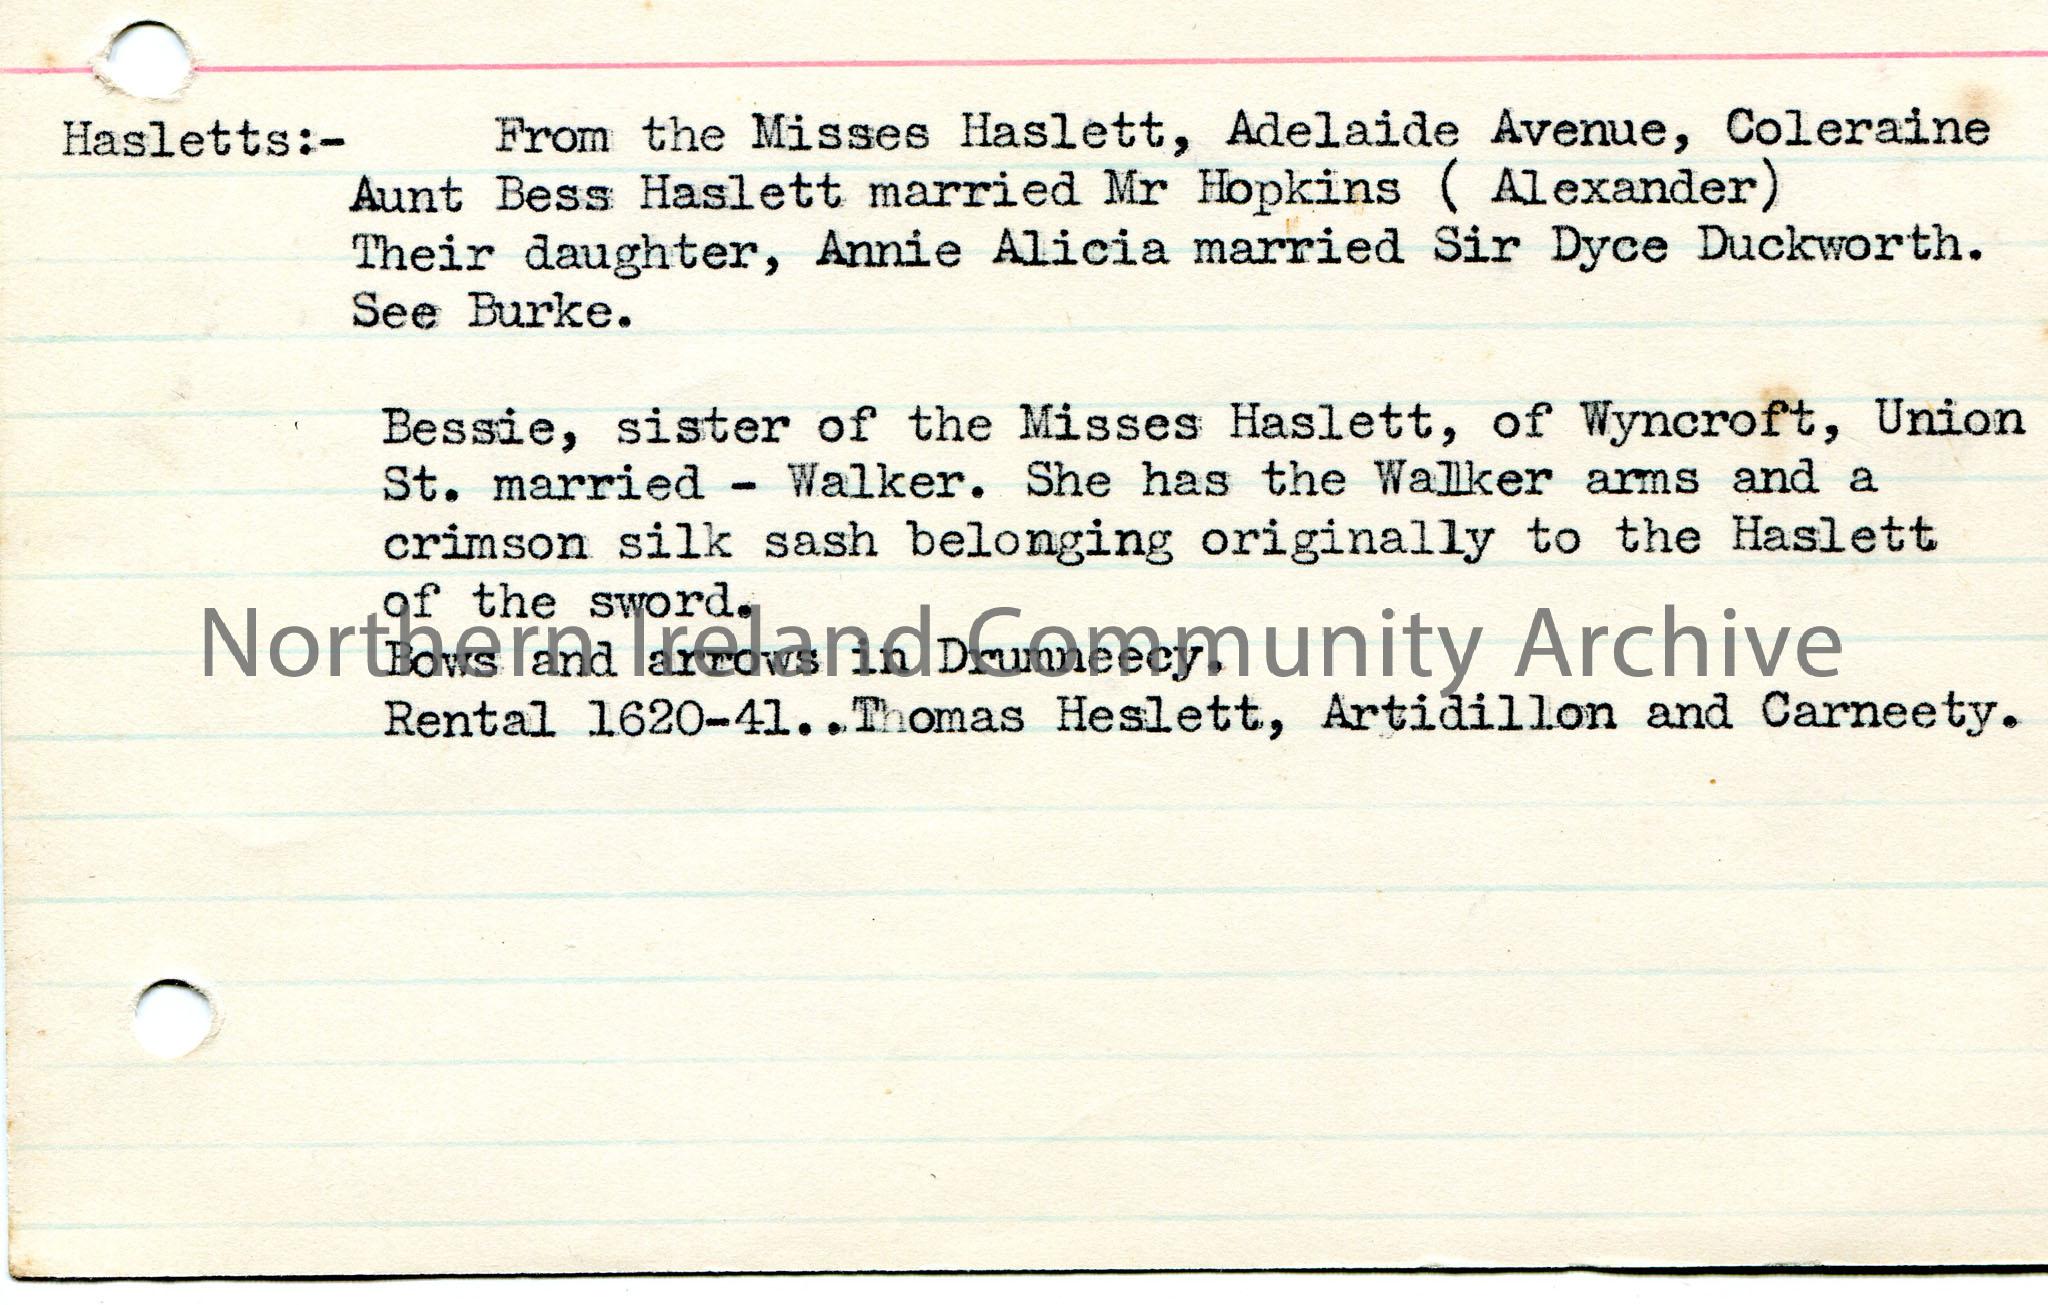 Hasletts:- From the Misses Haslett, Adelaide Avenue, Coleraine
Aunt Bess Haslett married Mr Hopkins ( Alexander)
Their daughter, Annie Alicia married Sir Dyce Duckworth.
See Burke.
Bessie, sister of the Misses Haslett, of Wyncroft, Union
St. married - Walker. She has the Walker arms and a
crimson silk sash belonging originally to the Haslett
of the sword.
Northern Ireland Community Archive
Bows and arrows in Drumneecy.
Rental 1620-41..Thomas Heslett, Artidillon and Carneety.